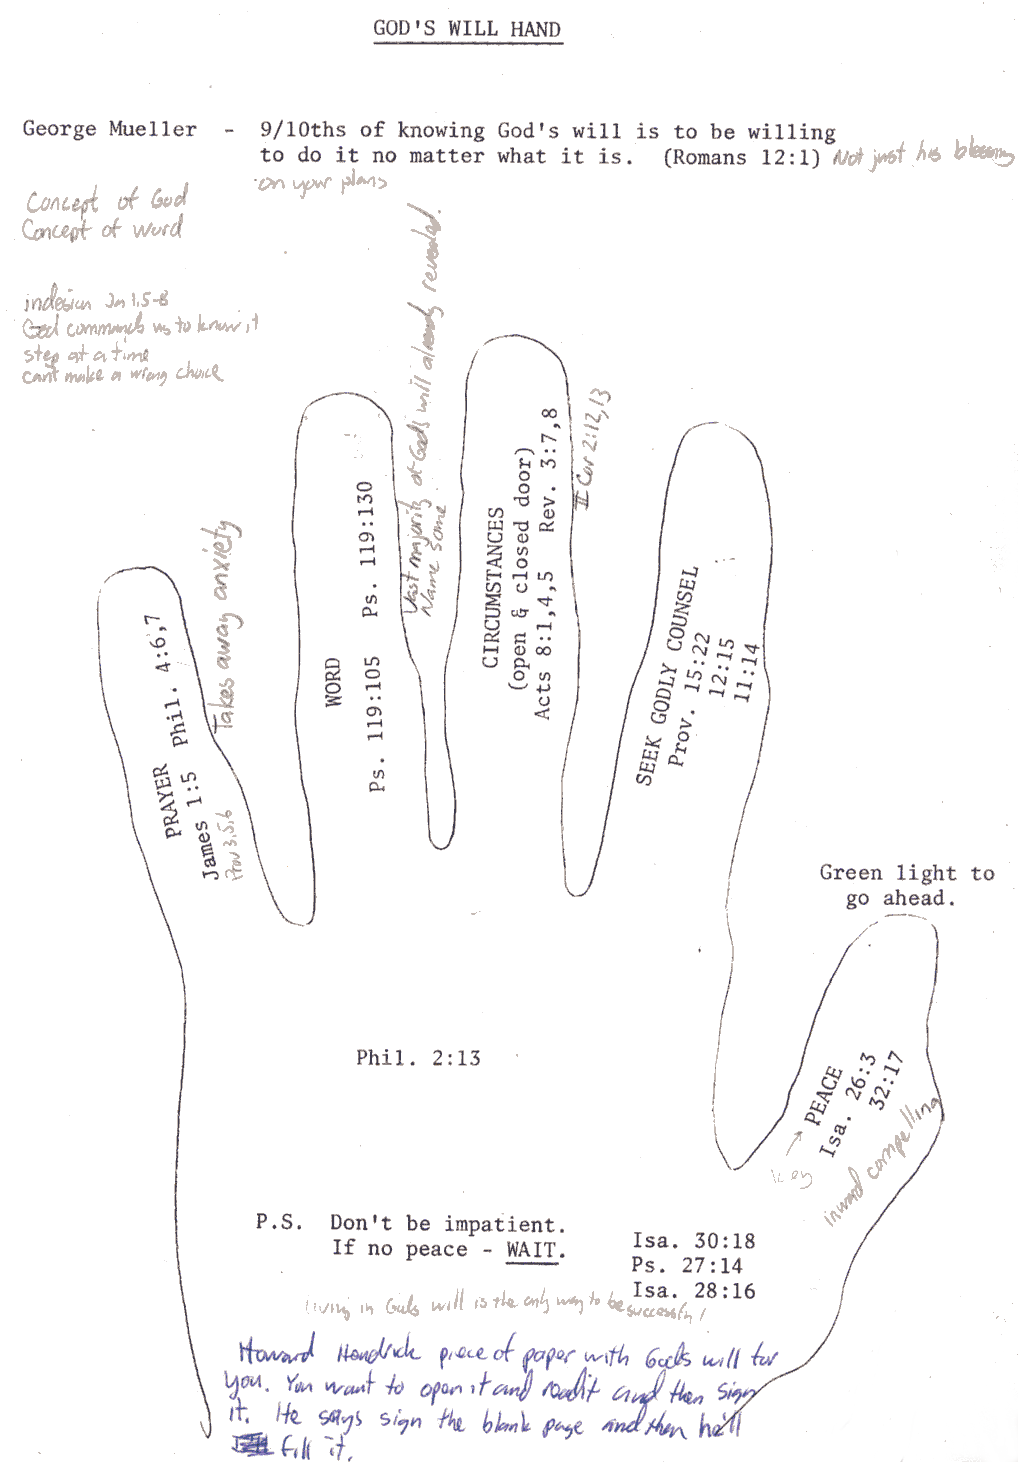 GOD'S WILL HAND
George Mueller - 9/10ths of knowing God's will is to be willing
to do it no matter what it is. (Romans 12:1) Not just his blessing
on your plans
Concept of God
Concept of word
indesiun Jm 1.5-8
God commands us to know it
step at a time
cant make a wrong choice
PRAYER
James 1:5 Phil. 4:6,7
Prov 3.5,6
Takes away anxiety
WORD
Ps. 119:105 Ps. 119:130
Vast majority of Gods will already revealed.
Name some
CIRCUMSTANCES
(open & closed door)
Acts 8:1,4,5 Rev. 3:7,8
II Cor 2:12,13
SEEK GODLY COUNSEL
Prov. 15:22
12:15
11:14
Green light to
go ahead.
PEACE
Isa. 26:3
32:17
Key
inward compelling
Phil. 2:13
P.S. Don't be impatient.
If no peace - WAIT.
Isa. 30:18
Ps. 27:14
Isa. 28:16
Living in Gods will is the only way to be successful!
Howard Hendrick piece of paper with Gods will for
you. You want to open it and read it and then sign
it. He says sign the blank page and then he'll
fill it.